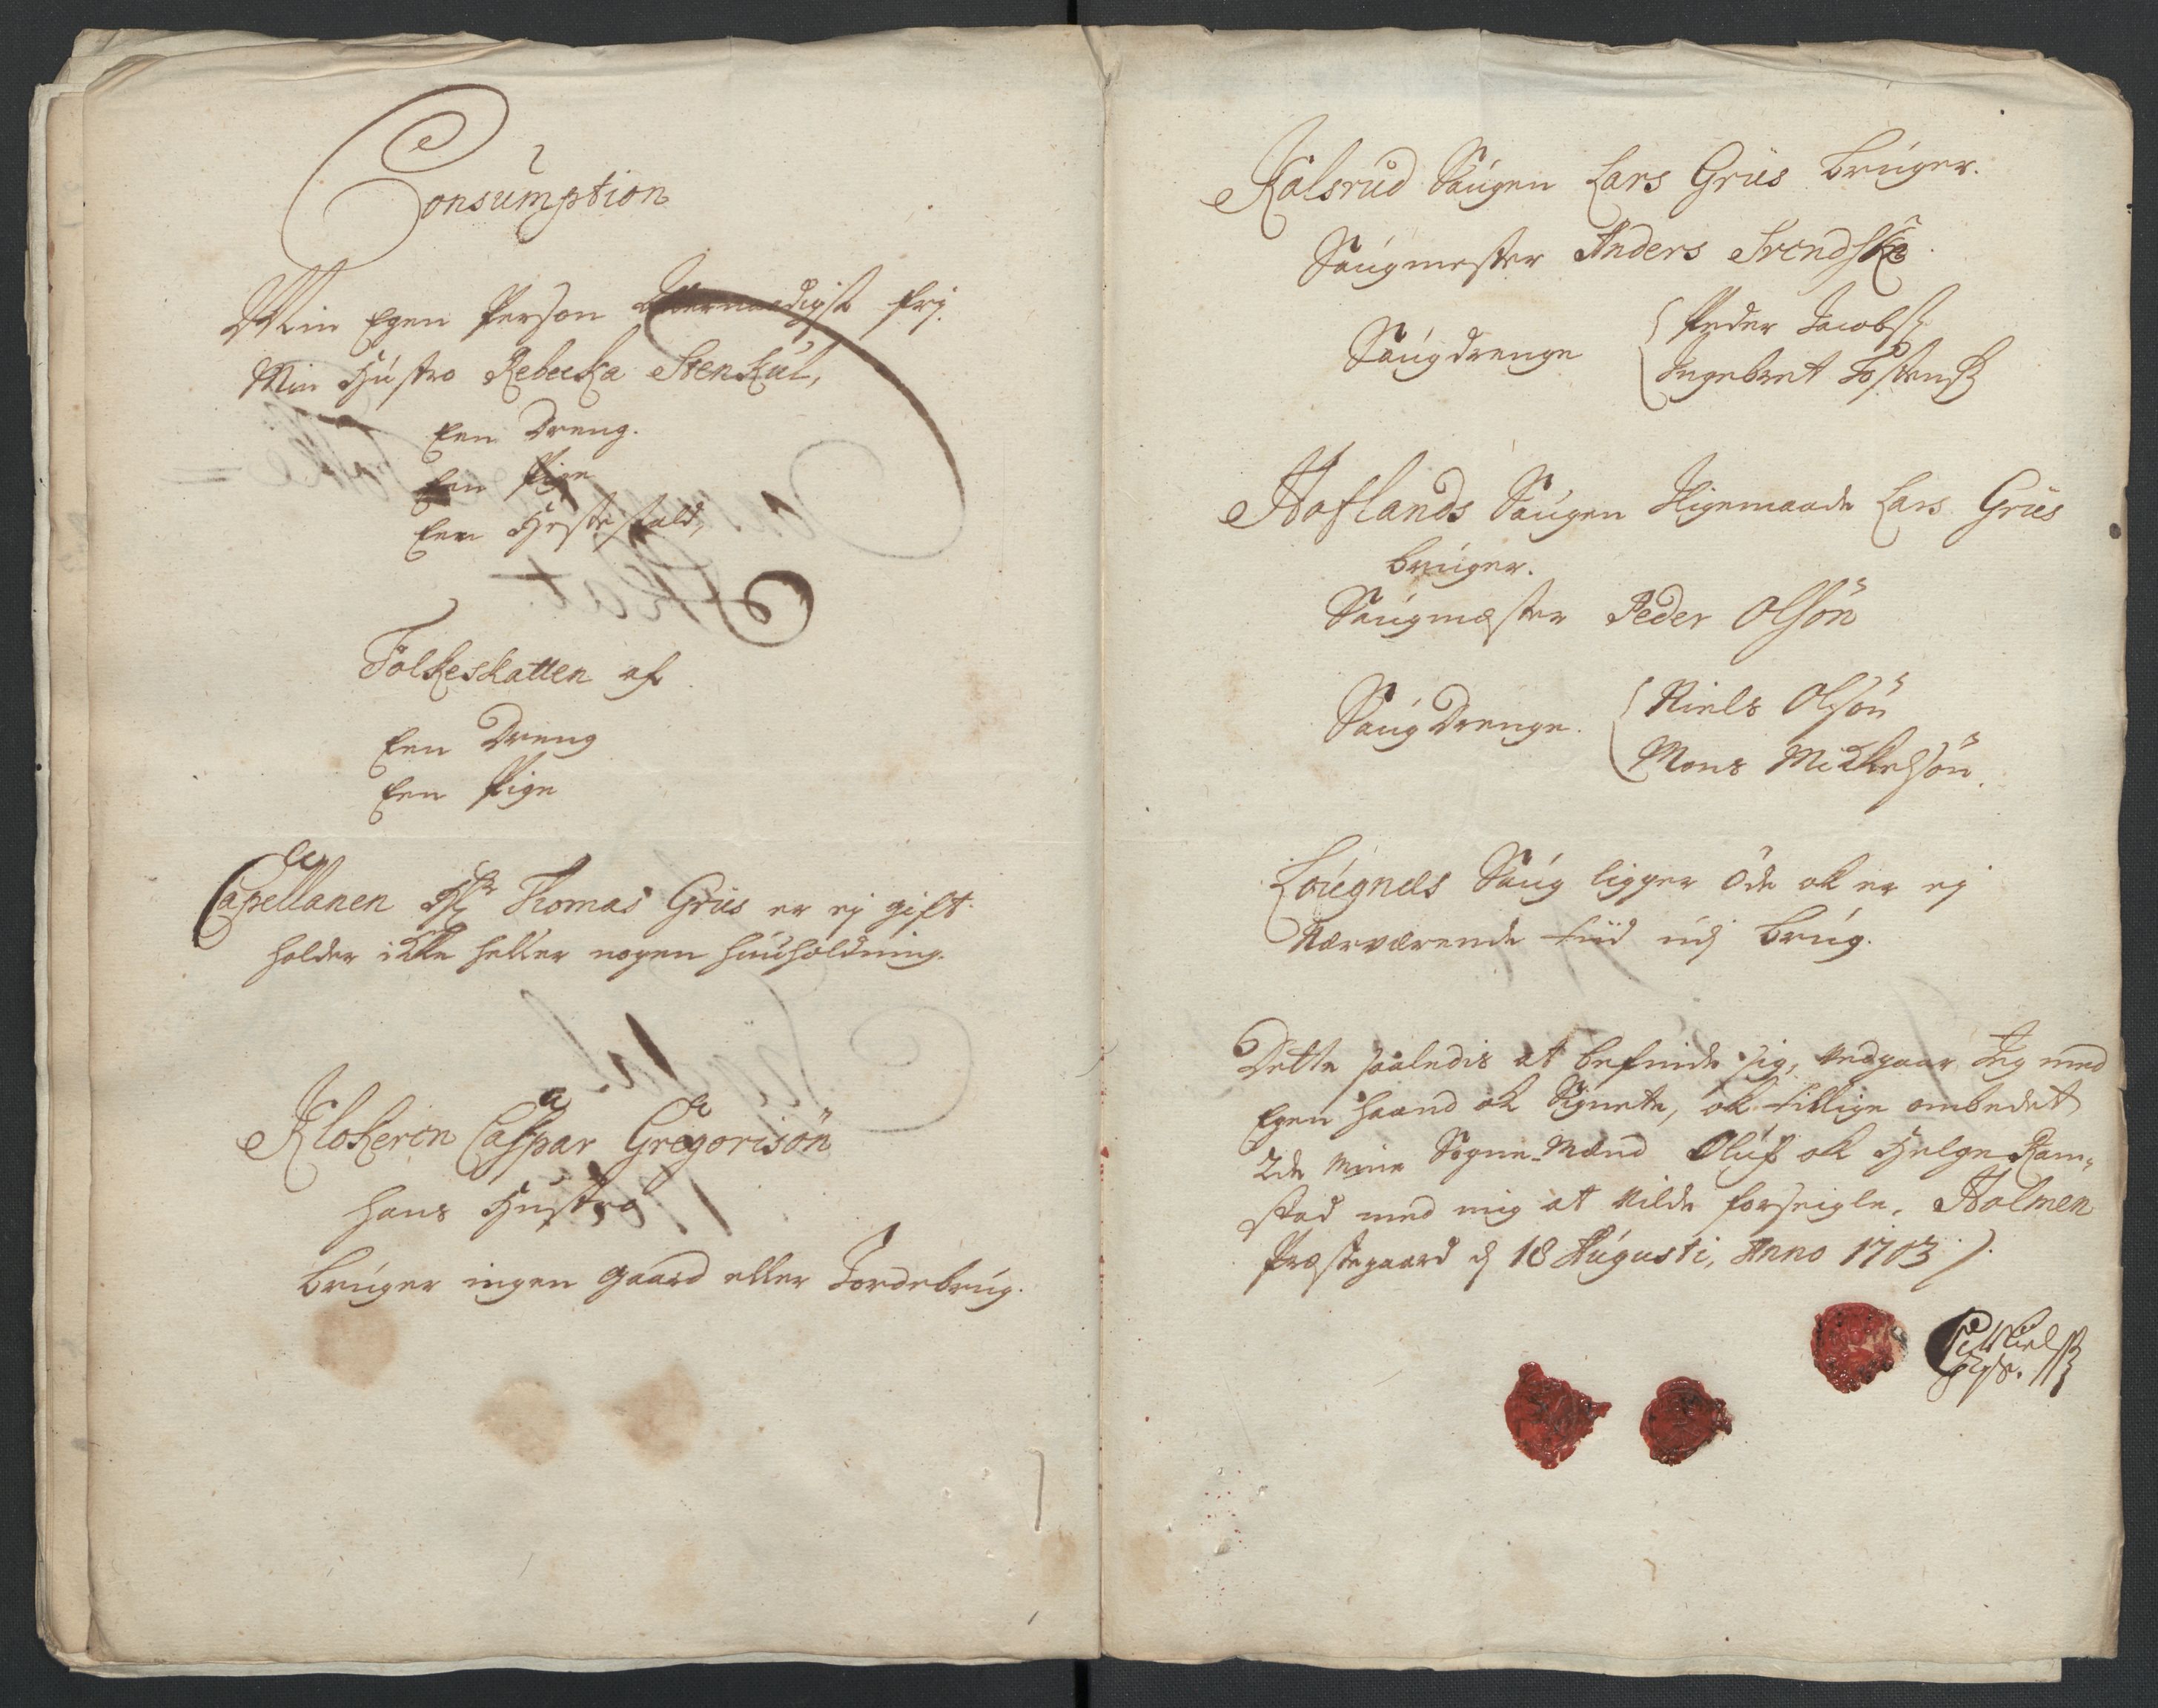 Consumption
Min Egen Person Allernaadigst frj.
Min Hustro Rebecka Stenkul,
Een Dreng.
Een Pige
Een Hestestald,
Folkeskatten af
Een Dreng
Een Pige
Capellanen Hr Thomas Grüs er ej gift
holder ikke heller nogen huusholdning.
Klokeren Caspar Gregorisön
hans Hustro
bruger ingen gaard eller Jordebrug.
Kalsrud Saugen Lars Grüs bruger.
Saugmester Anders Svendsk
Saugdrenge Peder Jacobsß
Ingebret Tostensß
Haflands Saugen ligemaade Lars Grües
bruger.
Saugmester Peder Olsön
Saug Drenge. Niels Olsön
Mons Mickelsön.
Lougnes Saug ligger öde ok er ej
Nærværende tiid udj brug.
Dette saaledis at befinde sig, vedgaar Jeg med
Egen haand ok Signete, ok tillige ombedet
2de mine Sogne-Mænd Oluf ok Helge Ram-
stad med mig at vilde forseigle. Holmen
Præstegaard d 18 Augusti, Anno 1703 /.